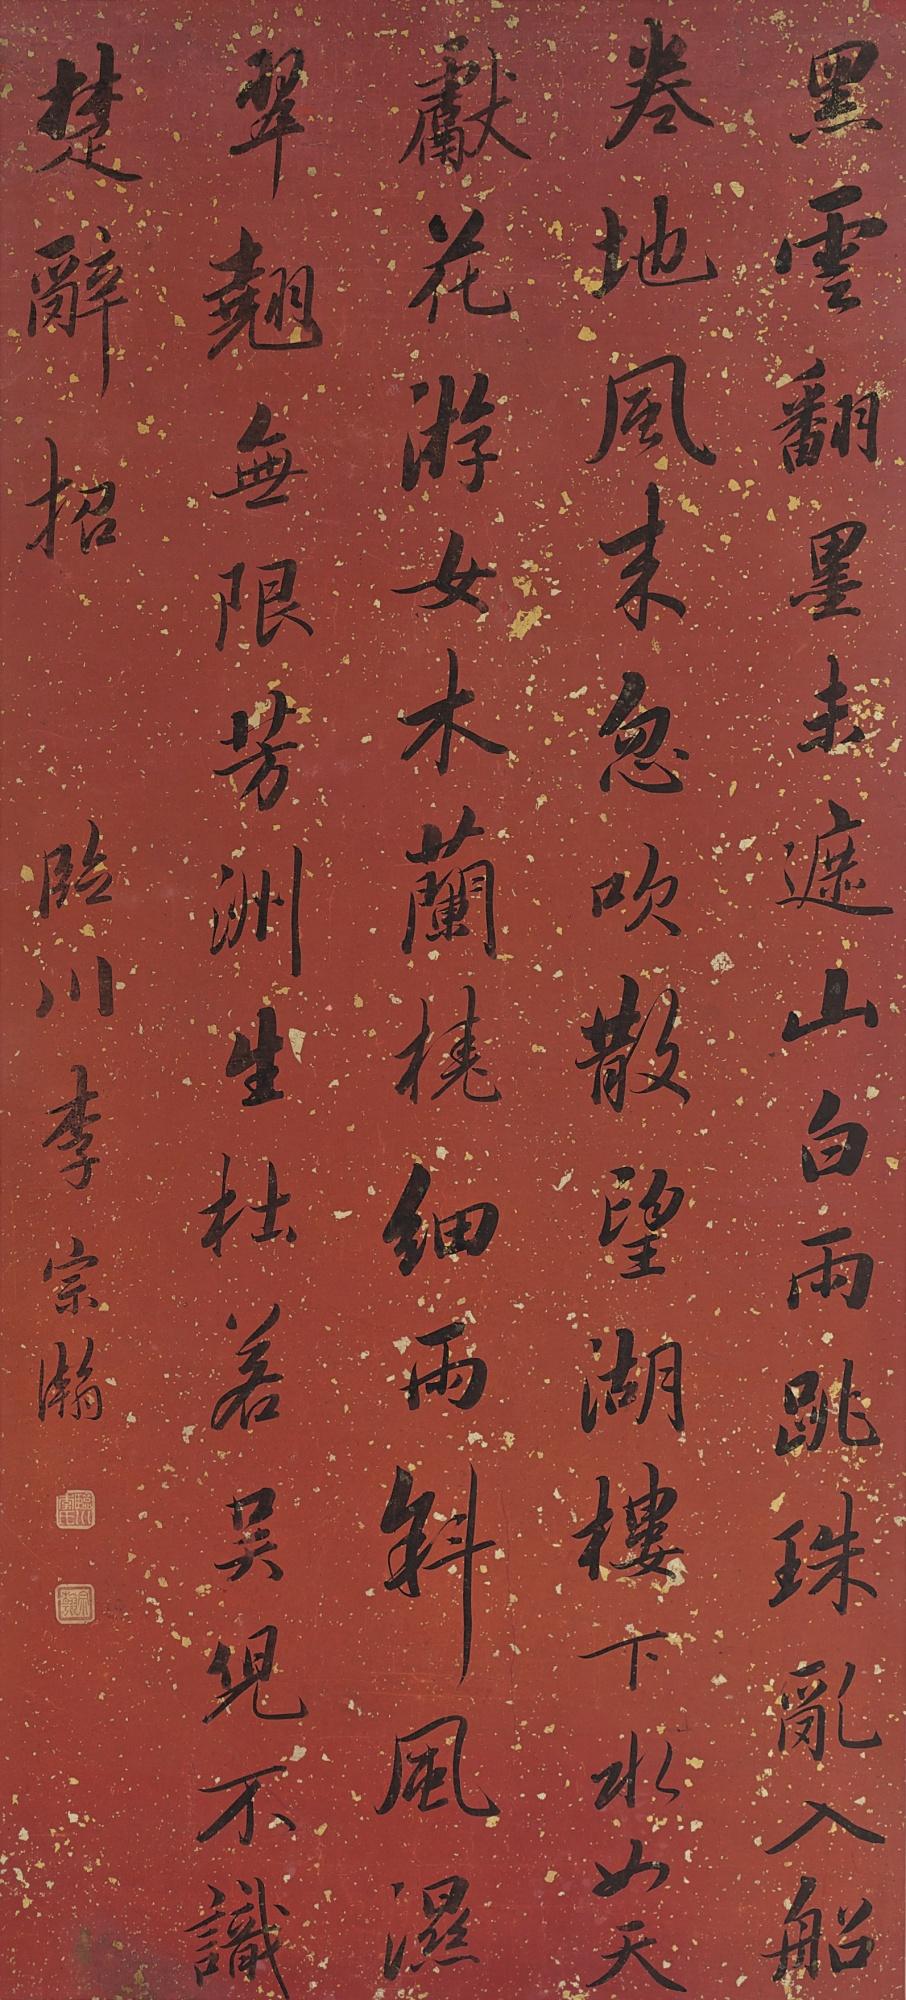 黑雲翻墨未遮山白雨跳珠亂入船
卷地風来忽吹散望湖樓下水如天
獻花游女木蘭橈細雨斜風濕
翠翹無限芳洲生杜若吳兒不識
楚辭招
臨川李宗瀚